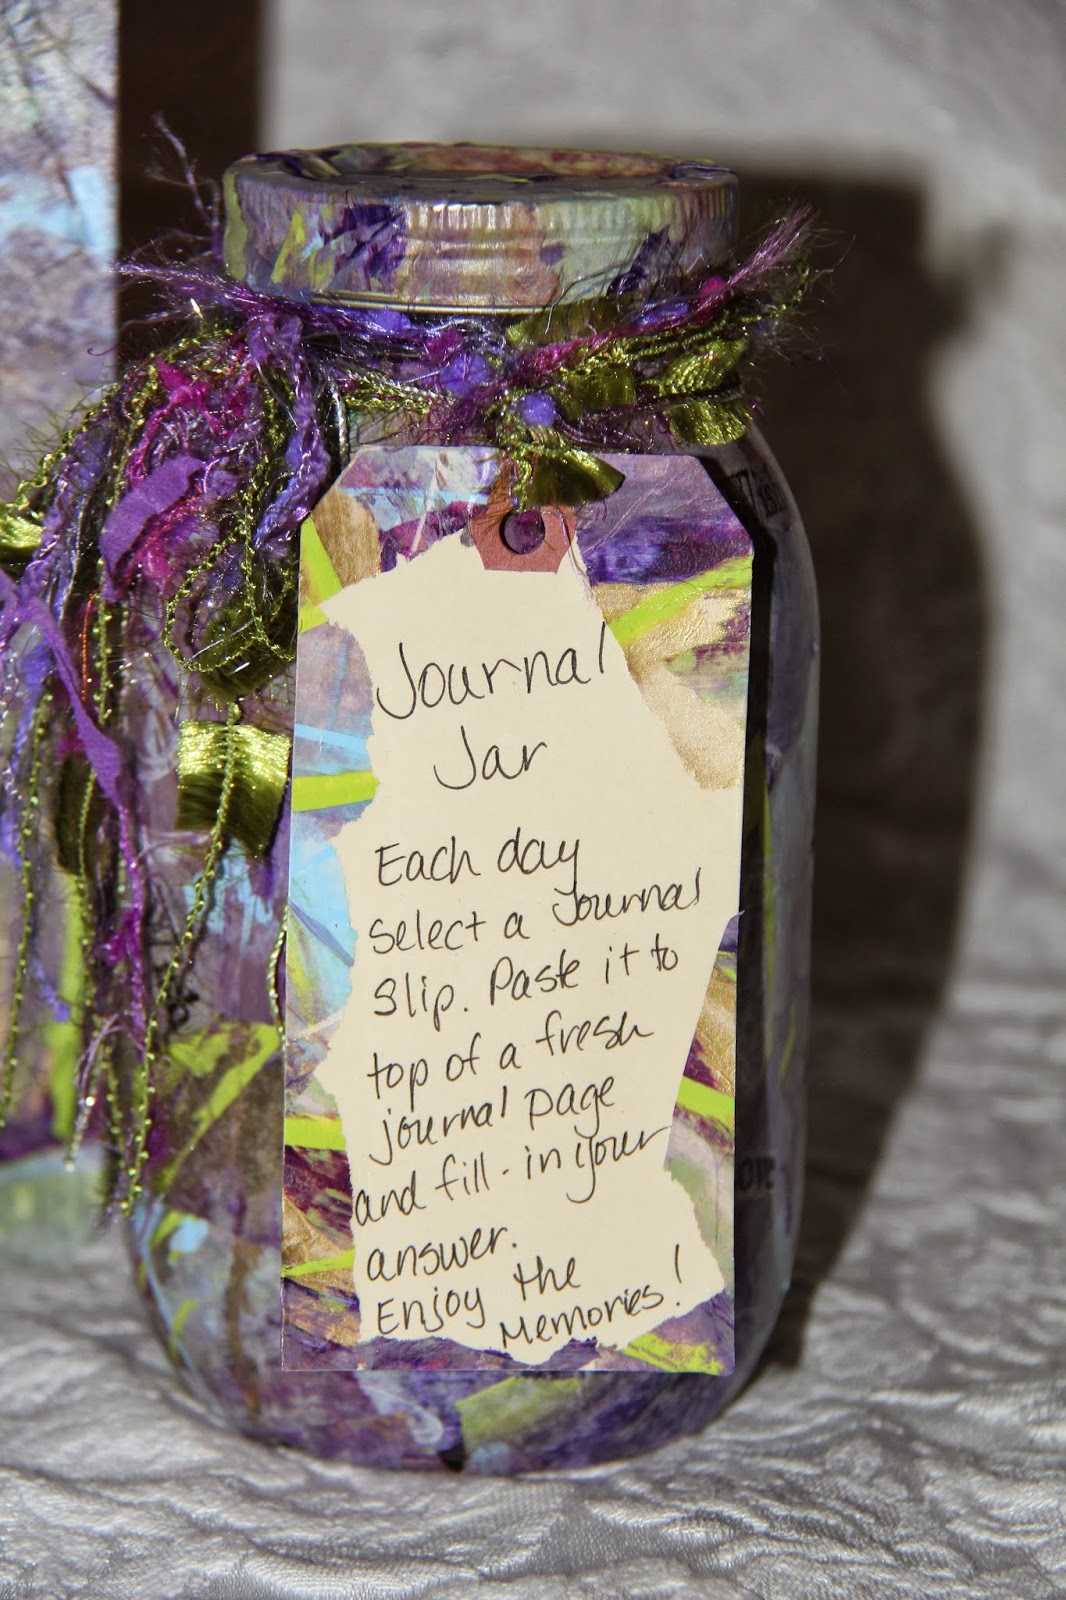 Journal
Jar
Each day
select a Journal
slip. Paste it to
top of a fresh
journal page
and fill-in your
answer.
Enjoy the
Memories!